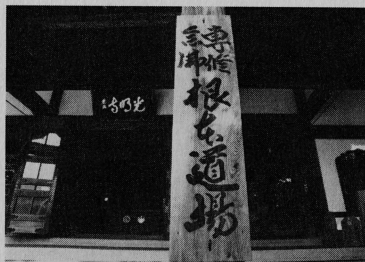 專修
念佛
根本道場
光明寺